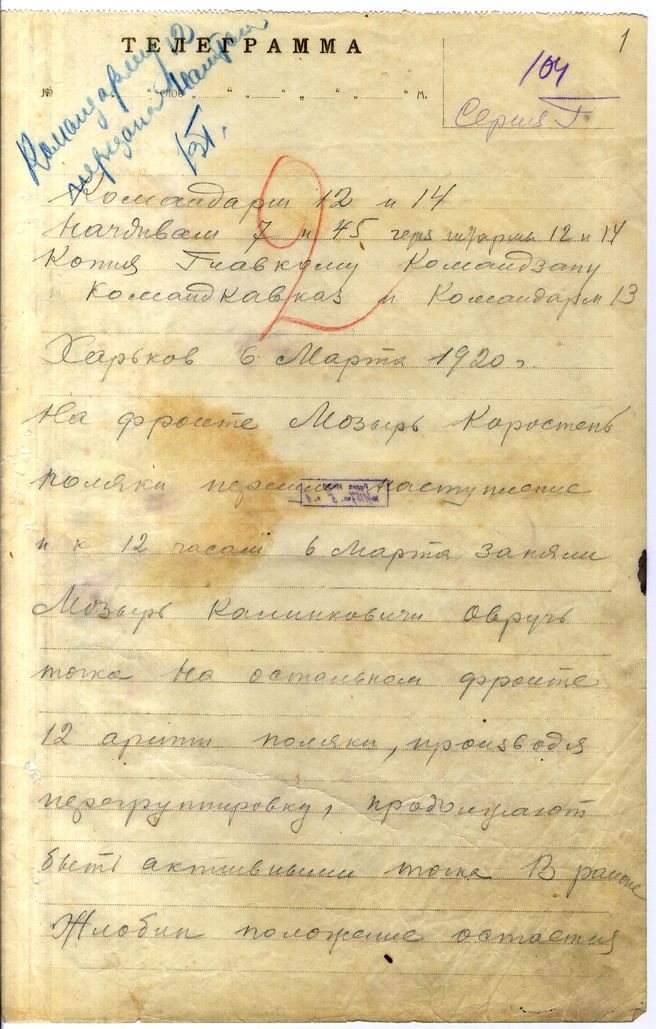 1
ТЕЛЕГРАММА
Командарму 12
передана
№ слов м.
104
Серия Г.
Командарм 12 и 14
Начдивам 7 и 45 через штармы 12 и 14
Копия Главкому Командзапу
и Командкавказ и Командарм 13
Харьков 6 Марта 1920 г.
На фронте Мозырь Коростень
поляки перешли наступление
и к 12 часам 6 Марта заняли
Мозырь Калинковичи Овручь
точка На остальном фронте
12 армии поляки, производя
перегруппировку, продолжают
быть активными точка В районе
Жлобин положение остается